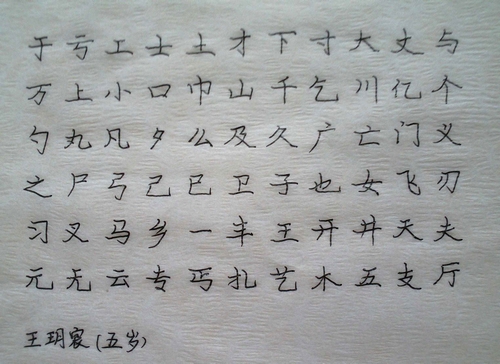 于亏工士土才下寸大丈与
万上小口巾山千乞川亿个
勺丸凡夕么及久广亡门义
之尸弓己已卫子也女飞刃
习叉马乡一丰王开井天夫
元无云专丐扎艺木五支厅
王玥宸(五岁)